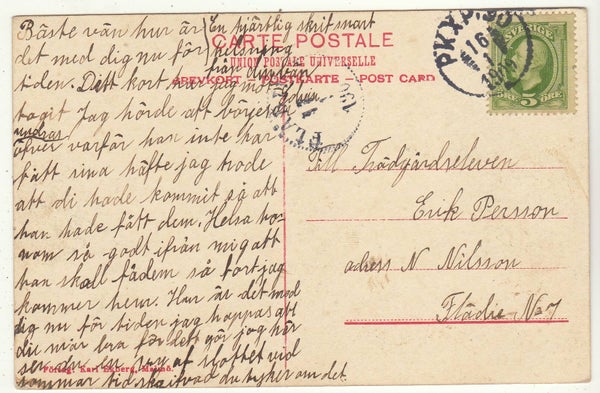 Bäste vän hur är
det med dig nu för
tiden. Ditt kort har jag mot
tagit Jag hörde att börje
undras
öfver varför han inte har
fått sina häfte jag trode
att di hade kommit så att
han hade fått dem. Helsa ho
nom så godt ifrån mig att
han skall få dem så fort jag
kommer hem. Hur är det med
dig nu för tiden jag hoppas att
du mår bra för det gör jag här
ser du en vy af slottet vid
sommar tid skrif vad du tyker om det
En hjärtlig skrif snart
helsning
från
CARTE POSTALE
UNION POSTALE UNIVERSELLE
BREVKORT - POSTKARTE - POST CARD
PKXP.
16
1
SVERIGE
5
ÖRE
Till Trädgårdseleven
Erik Persson
adress N Nilsson
Flädie No 7
Förlag: Karl Ekberg, Malmö.